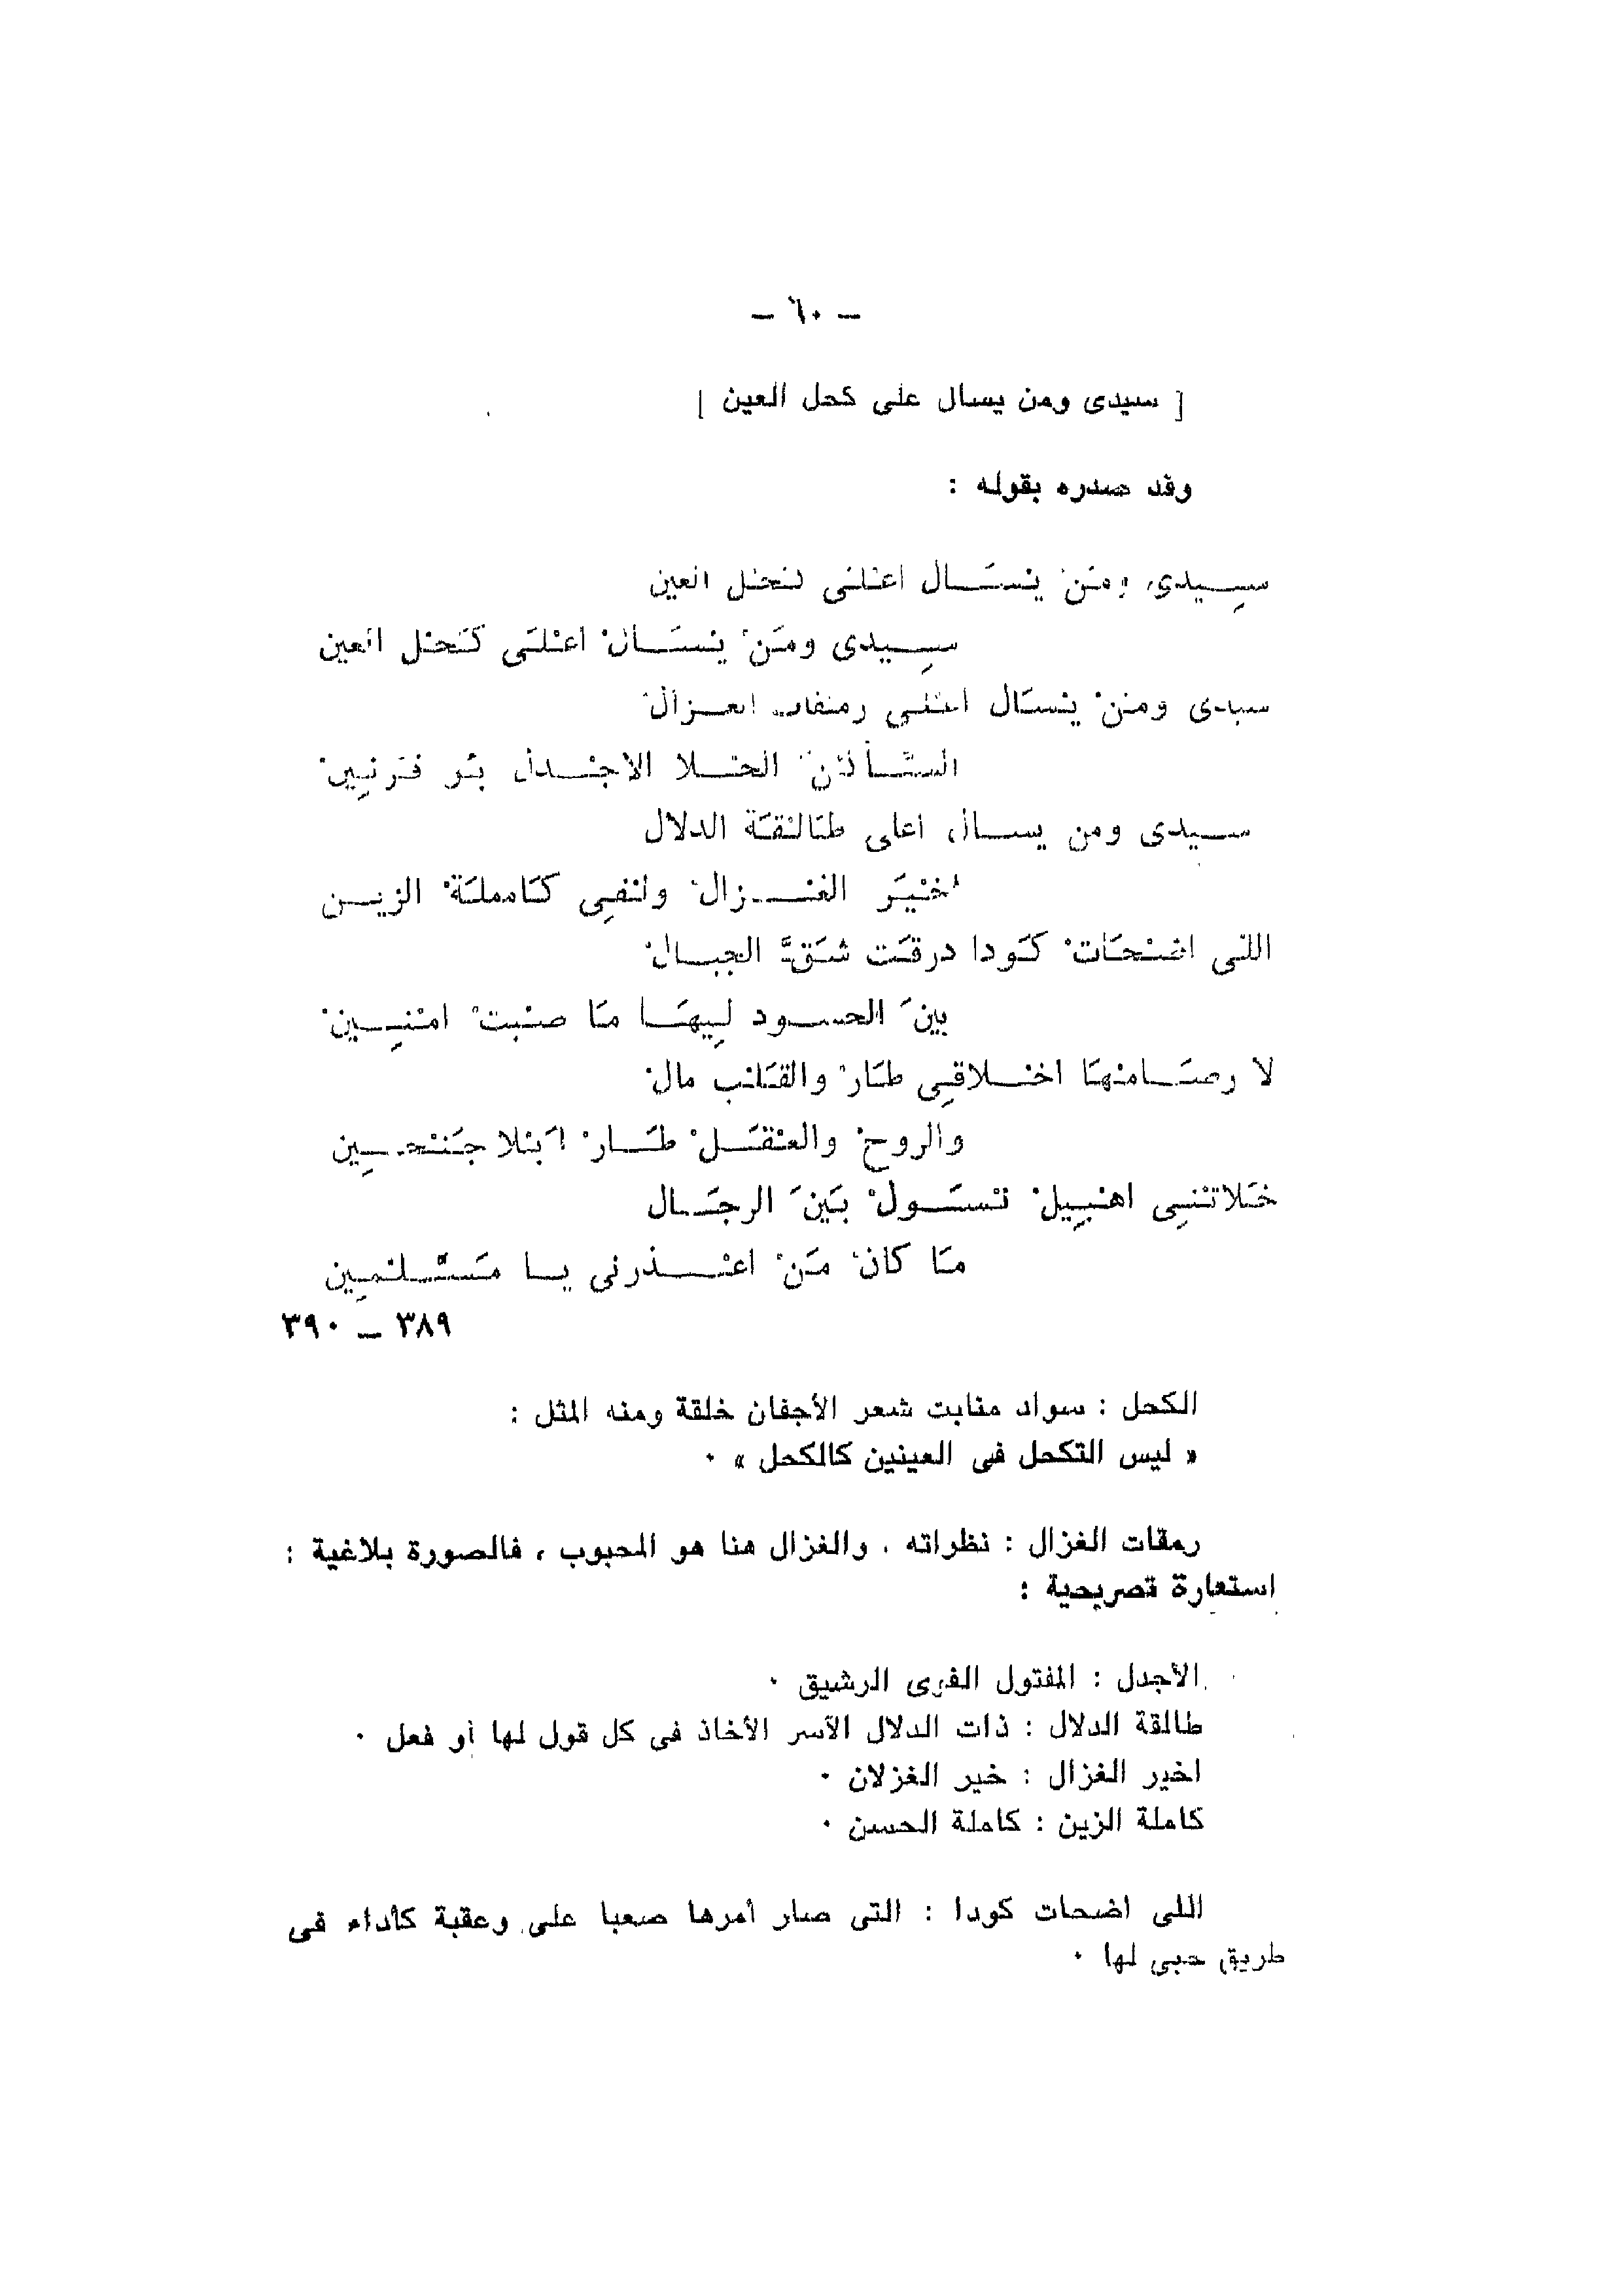 – ٦٠ –
[ سيدى ومن يسال على كحل العين ]
وقد صدره بقوله :
سِيدى ومَنْ يَنْسَال اعْلى كَحْل العين
سِيدى ومَنْ يَنْسَالْ اعْلَى كَحْل العين
سيدى ومنْ يَنْسَال اعْلى رمقات الغزالْ
الحْلا الاجْدل بُو قَرْنِينْ
سيدى ومن يسال اعلى طَالْقَة الدلال
اخْيَر الغزالْ ولْفِى كَاملَة الزين
اللى اضْحَاتْ كَودا درقَت شَقَّ الجبالْ
بينَ الحسود لِيهَا مَا صبْت امْنِينْ
اخلاقِى طَارْ والقَلْب مالْ
والروحْ والعَقَلْ طَارْ ابْلا جَنْحِين
خَلاتْنِى اهْبِيلْ نَسَولْ بَينَ الرجَال
مَا كانْ مَنْ اعْذرنى يا مَسْلمِين
٣٨٩ – ٣٩٠
الكحل : سواد منابت شعر الأجفان خلقة ومنه المثل :
« ليس التكحل فى العينين كالكحل » ٠
رمقات الغزال : نظراته ، والغزال هنا هو المحبوب ، فالصورة بلاغية :
استعارة تصريحية :
الأجدل : المفتول القوى الرشيق ٠
طالقة الدلال : ذات الدلال الآسر الأخاذ فى كل قول لها أو فعل ٠
اخير الغزال : خير الغزلان ٠
كاملة الزين : كاملة الحسن ٠
اللى اضحات كودا : التى صار أمرها صعبا على وعقبة كأداء فى
طريق حبى لها ٠